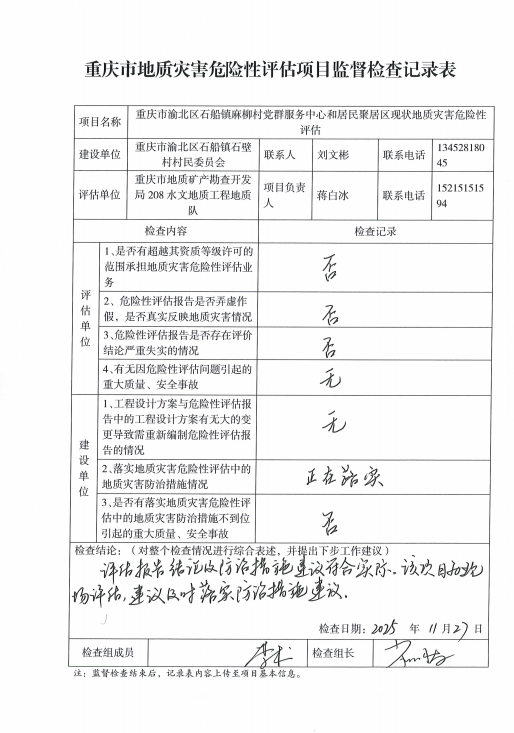 重庆市地质灾害危险性评估项目监督检查记录表
项目名称
重庆市渝北区石船镇麻柳村党群服务中心和居民聚居区现状地质灾害危险性
评估
建设单位
重庆市渝北区石船镇石壁
村村民委员会
联系人
刘文彬
联系电话
134528180
45
评估单位
重庆市地质矿产勘查开发
局 208 水文地质工程地质
队
项目负责
人
蒋白冰
联系电话
152151515
94
检查内容
检查记录
评估单位
1、是否有超越其资质等级许可的
范围承担地质灾害危险性评估业
务
否
2、危险性评估报告是否弄虚作
假，是否真实反映地质灾害情况
否
3、危险性评估报告是否存在评价
结论严重失实的情况
否
4、有无因危险性评估问题引起的
重大质量、安全事故
无
建设单位
1、工程设计方案与危险性评估报
告中的工程设计方案有无大的变
更导致需重新编制危险性评估报
告的情况
无
2、落实地质灾害危险性评估中的
地质灾害防治措施情况
正在落实
3、是否有落实地质灾害危险性评
估中的地质灾害防治措施不到位
引起的重大质量、安全事故
否
检查结论：（对整个检查情况进行综合表述，并提出下步工作建议）
评估报告结论及防治措施建议符合实际。该项目为现
场评估，建议及时落实防治措施建议。
检查日期：2025 年 11 月 27 日
检查组成员
李术
检查组长
注：监督检查结束后，记录表内容上传至项目基本信息。